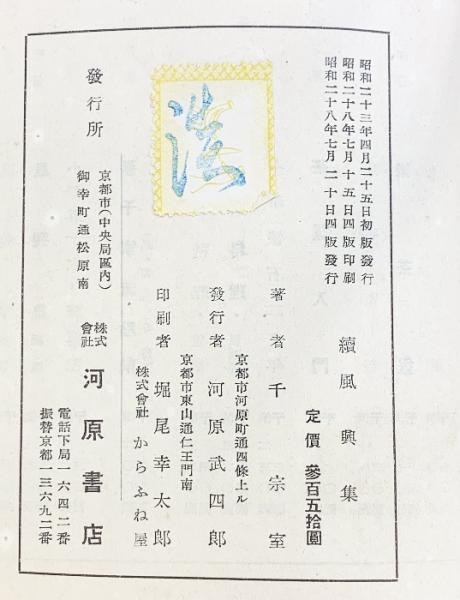 昭和二十三年四月二十五日初版發行
昭和二十八年七月十五日四版印刷
昭和二十八年七月二十日四版發行
續風興集
定價 參百五拾圓
著者 千宗室
京都市河原町通四條上ル
發行者 河原武四郎
京都市東山通仁王門南
印刷者 堀尾幸太郎
株式會社 からふね屋
發行所
京都市(中央局區內)
御幸町通松原南
株式會社 河原書店
電話下局一六四二番
振替京都一三六九二番